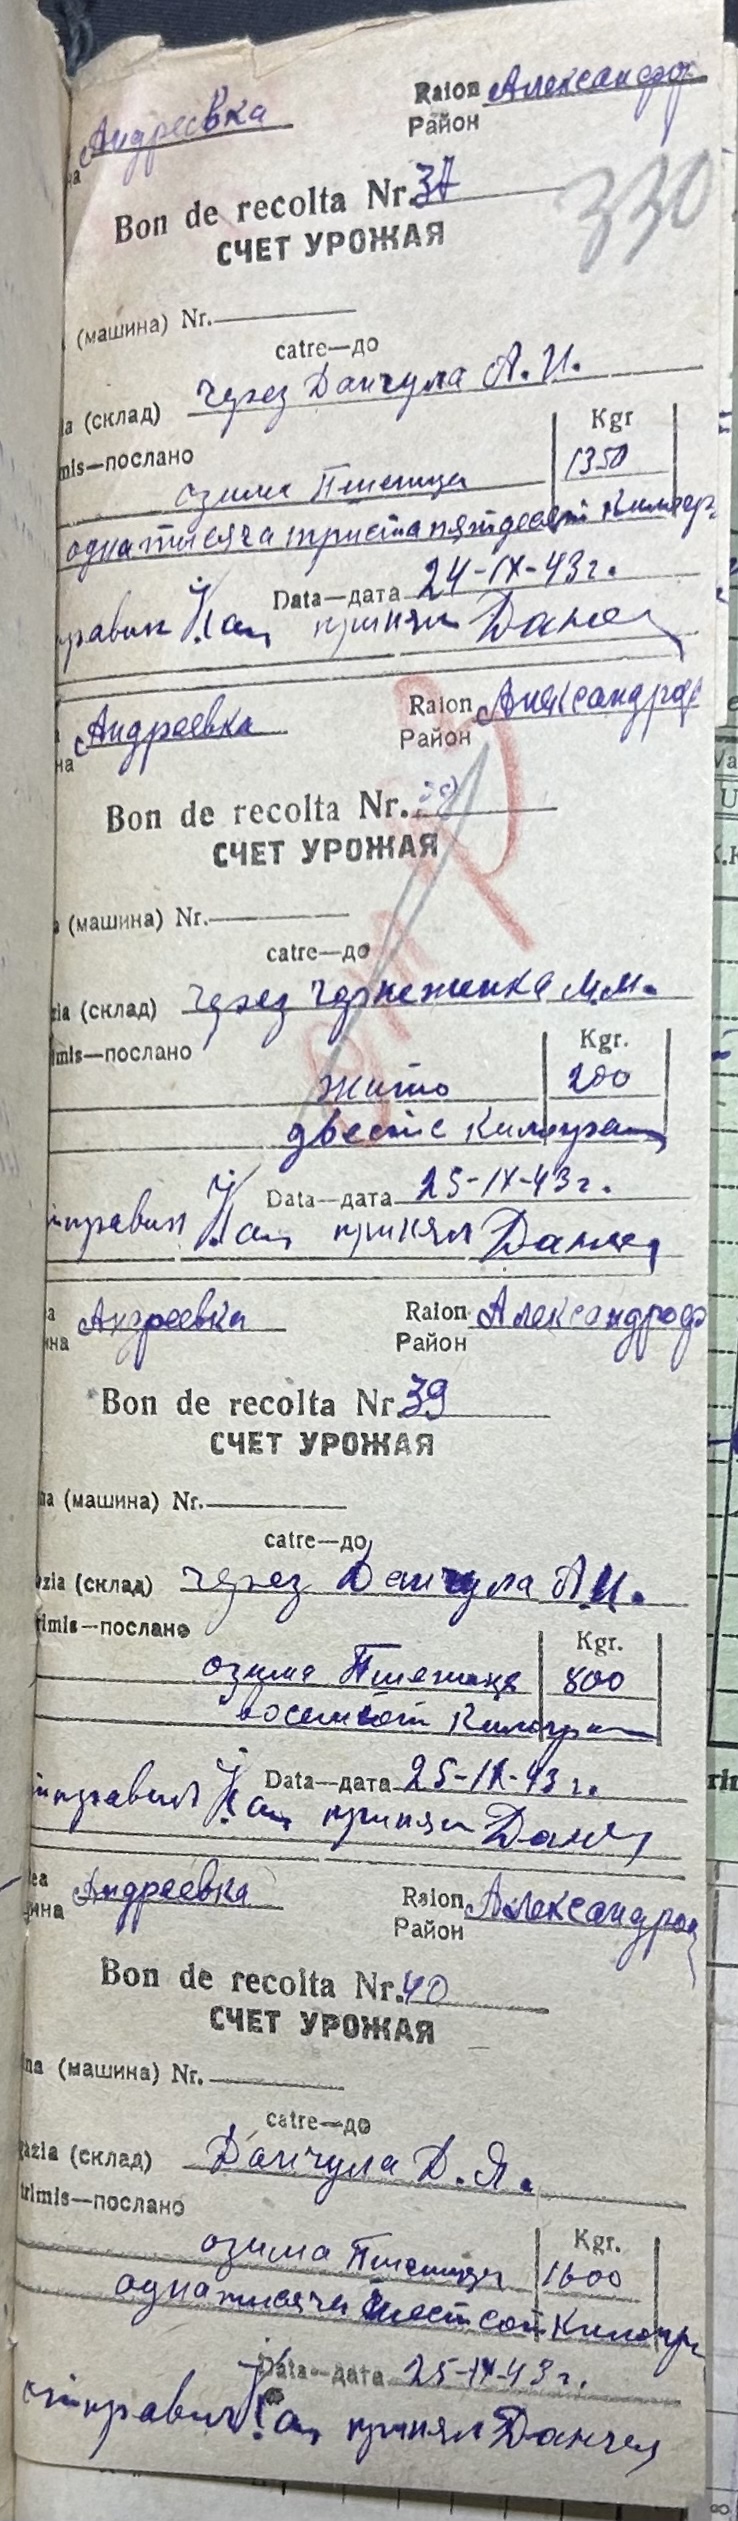 Андреевка Raion Александроф
на Район
Bon de recolta Nr. 37
330
СЧЕТ УРОЖАЯ
(машина) Nr.
catre—до
la (склад) через Данчула А.И.
mis—послано Kgr
озима Пшеница 1350
одна тысяча триста пятдесят Килогр
Data—дата 24-IX-43г.
правил принял
Андреевка Raion Александроф
на Район
Bon de recolta Nr. 38
СЧЕТ УРОЖАЯ
(машина) Nr.
catre—до
zia (склад) через М.М.
imis—послано Kgr.
жито 200
двести Килограм
Data—дата 25-IX-43г.
правил принял
a Андреевка Raion Александроф
ина Район
Bon de recolta Nr. 39
СЧЕТ УРОЖАЯ
na (машина) Nr.
catre—до
zia (склад) через Данчула А.И.
rimis—послано Kgr.
озима Пшеница 800
восемсот Килограм
Data—дата 25-IX-43г.
правил принял
lea Андреевка Raion Александроф
щина Район
Bon de recolta Nr. 40
СЧЕТ УРОЖАЯ
na (машина) Nr.
catre—до
azia (склад) Данчула Д.Я.
trimis—послано Kgr.
озима Пшеница 1600
одна тисяча шестсот Килогр
Data—дата 25-IX-43г.
отправил принял